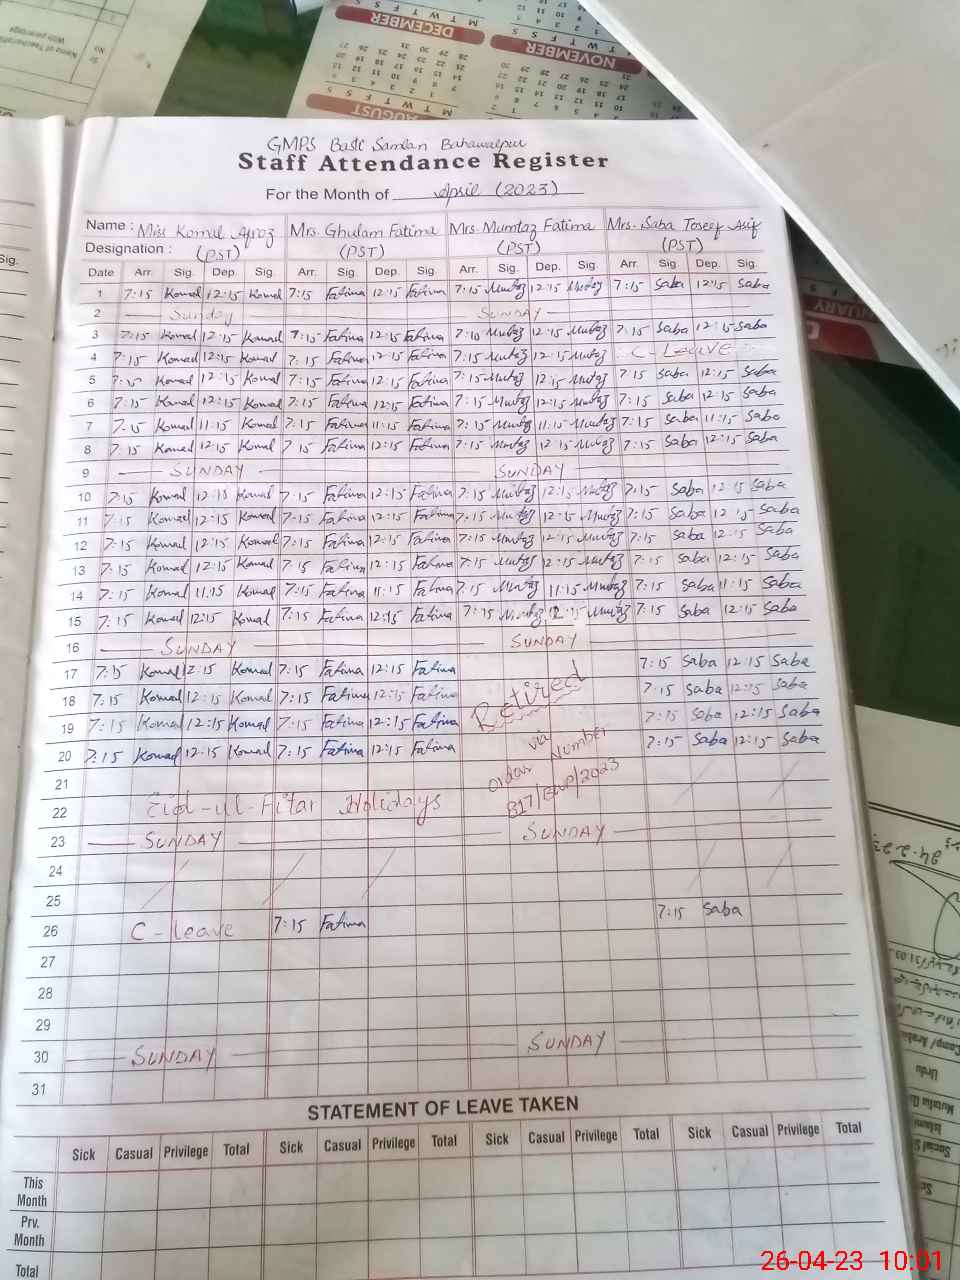 GMPS Basti Samlan Bahawalpur
Staff Attendance Register
For the Month of April (2023)
Name : Miss Komal Afroz Mrs. Ghulam Fatima Mrs. Mumtaz Fatima Mrs. Saba Toseef Asif
Designation : (PST) (PST) (PST) (PST)
Date Arr. Sig. Dep. Sig. Arr. Sig Dep. Sig. Arr. Sig. Dep. Sig. Arr. Sig. Dep. Sig.
1 7:15 Komal 12:15 Komal 7:15 Fatima 12:15 Fatima 7:15 Mutaz 12:15 Mutaz 7:15 Saba 12:15 Saba
2 Sunday SUNDAY
3 7:15 Komal 12:15 Komal 7:15 Fatima 12:15 Fatima 7:10 Mutaz 12:15 Mutaz 7:15 Saba 12:15 Saba
4 7:15 Komal 12:15 Komal 7:15 Fatima 12:15 Fatima 7:15 Mutaz 12:15 Mutaz C-Leave
5 7:15 Komal 12:15 Komal 7:15 Fatima 12:15 Fatima 7:15 Mutaz 12:15 Mutaz 7:15 Saba 12:15 Saba
6 7:15 Komal 12:15 Komal 7:15 Fatima 12:15 Fatima 7:15 Mutaz 12:15 Mutaz 7:15 Saba 12:15 Saba
7 7:15 Komal 11:15 Komal 7:15 Fatima 11:15 Fatima 7:15 Mutaz 11:15 Mutaz 7:15 Saba 11:15 Saba
8 7:15 Komal 12:15 Komal 7:15 Fatima 12:15 Fatima 7:15 Mutaz 12:15 Mutaz 7:15 Saba 12:15 Saba
9 SUNDAY SUNDAY
10 7:15 Komal 12:15 Komal 7:15 Fatima 12:15 Fatima 7:15 Mutaz 12:15 Mutaz 7:15 Saba 12:15 Saba
11 7:15 Komal 12:15 Komal 7:15 Fatima 12:15 Fatima 7:15 Mutaz 12:15 Mutaz 7:15 Saba 12:15 Saba
12 7:15 Komal 12:15 Komal 7:15 Fatima 12:15 Fatima 7:15 Mutaz 12:15 Mutaz 7:15 Saba 12:15 Saba
13 7:15 Komal 12:15 Komal 7:15 Fatima 12:15 Fatima 7:15 Mutaz 12:15 Mutaz 7:15 Saba 12:15 Saba
14 7:15 Komal 11:15 Komal 7:15 Fatima 11:15 Fatima 7:15 Mutaz 11:15 Mutaz 7:15 Saba 11:15 Saba
15 7:15 Komal 12:15 Komal 7:15 Fatima 12:15 Fatima 7:15 Mutaz 12:15 Mutaz 7:15 Saba 12:15 Saba
16 SUNDAY SUNDAY
17 7:15 Komal 12:15 Komal 7:15 Fatima 12:15 Fatima 7:15 Saba 12:15 Saba
18 7:15 Komal 12:15 Komal 7:15 Fatima 12:15 Fatima Retired 7:15 Saba 12:15 Saba
19 7:15 Komal 12:15 Komal 7:15 Fatima 12:15 Fatima via 7:15 Saba 12:15 Saba
20 7:15 Komal 12:15 Komal 7:15 Fatima 12:15 Fatima order Number 7:15 Saba 12:15 Saba
21 B17/BWP/2023
22 Eid-ul-Fitar Holidays
23 SUNDAY SUNDAY
24
25
26 C-leave 7:15 Fatima 7:15 Saba
27
28
29
30 SUNDAY SUNDAY
31
STATEMENT OF LEAVE TAKEN
Sick Casual Privilege Total Sick Casual Privilege Total Sick Casual Privilege Total Sick Casual Privilege Total
This Month
Prv. Month
Total
NOVEMBER
DECEMBER
AUGUST
Sig.
Urdu
26-04-23 10:01